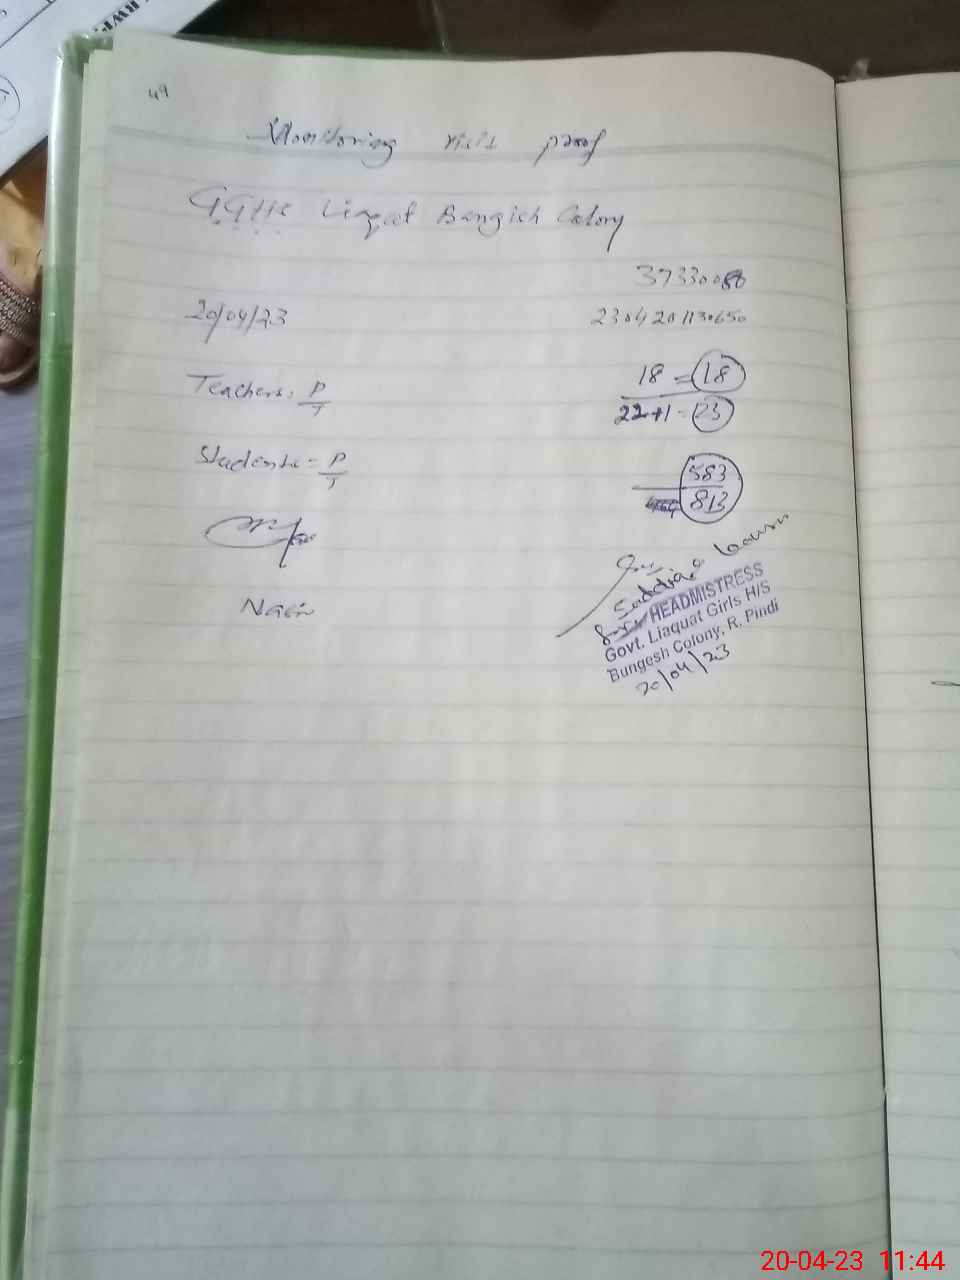 49
Monitoring visit proof
GGHS Liaquat Bangish Colony
37330088
20/04/23
2304201130650
Teachers: P/T
18 = 18
22+1 = 23
Students = P/T
583
813
Nasir
HEADMISTRESS
Govt. Liaquat Girls H/S
Bungesh Colony, R. Pindi
20/04/23
20-04-23 11:44